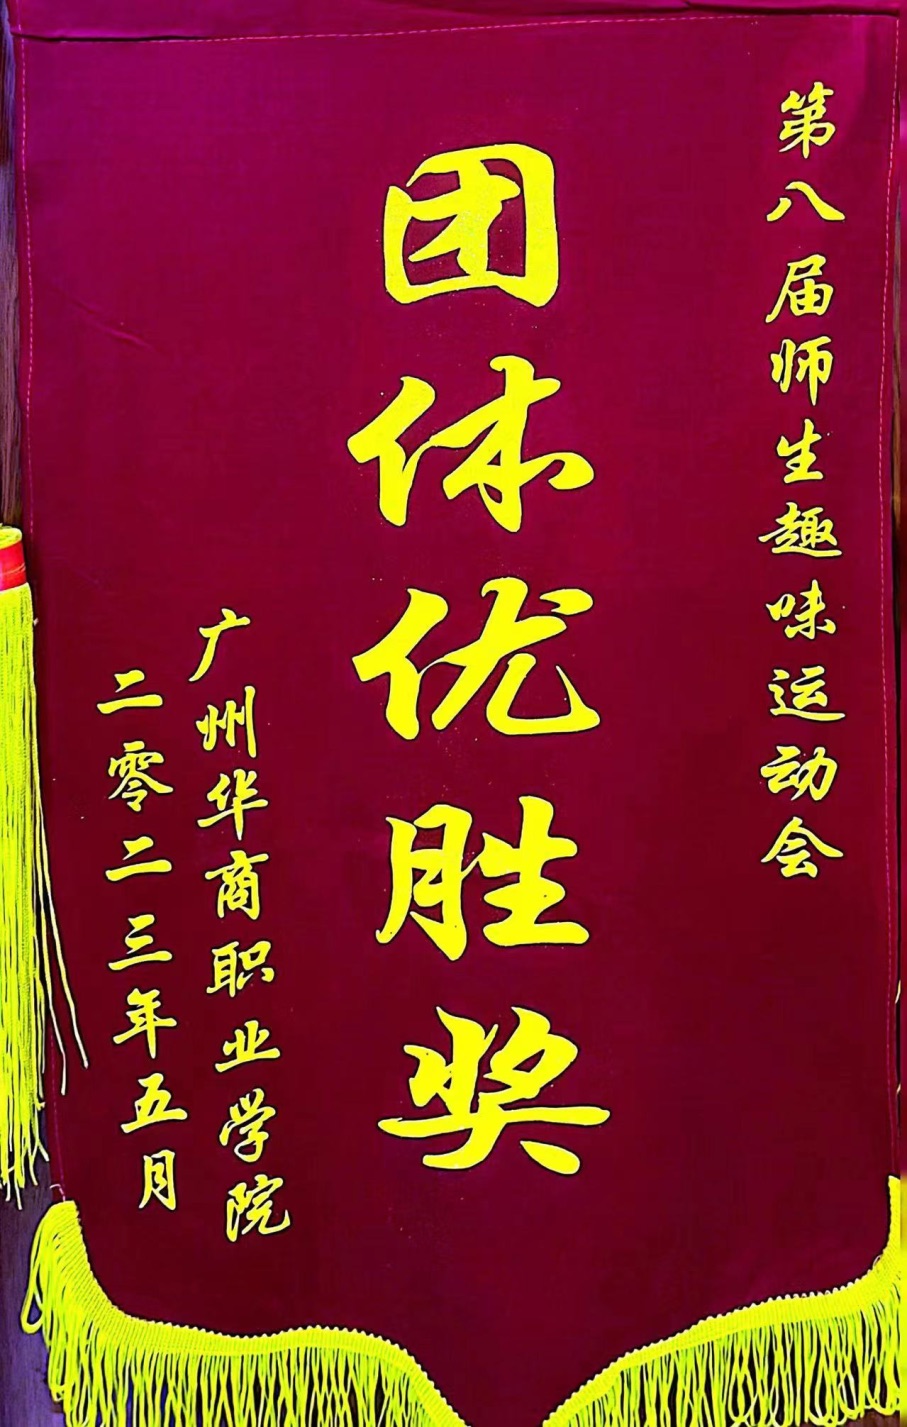 第八届师生趣味运动会
团体优胜奖
广州华商职业学院
二零二三年五月